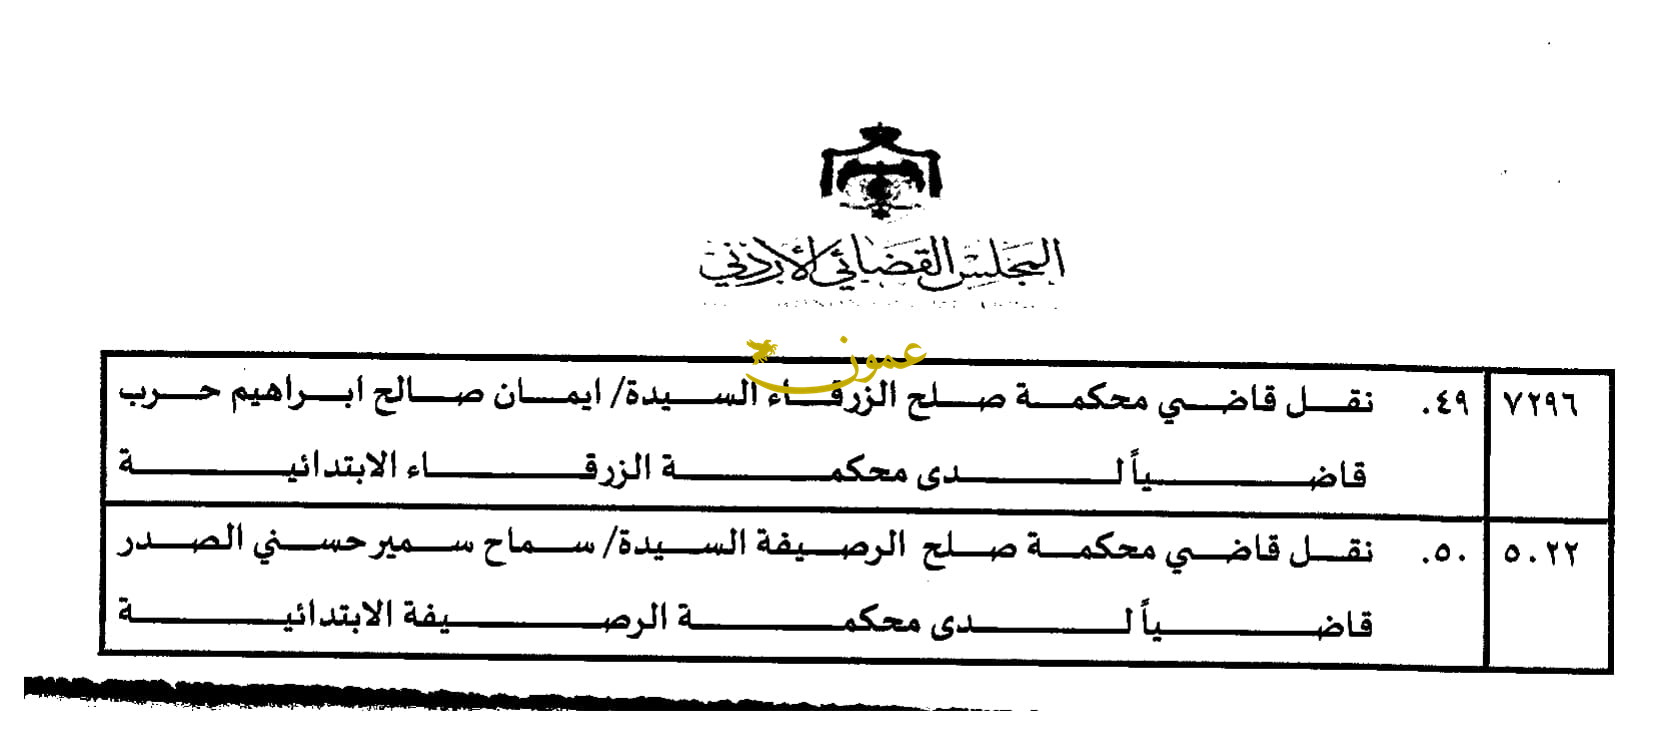 المجلس القضائي الأردني
عمون
٧٢٩٦ ٤٩. نقل قاضي محكمة صلح الزرقاء السيدة/ ايمان صالح ابراهيم حرب
قاضياً لدى محكمة الزرقاء الابتدائية
٥٠٢٢ ٥٠. نقل قاضي محكمة صلح الرصيفة السيدة/ سماح سمير حسني الصدر
قاضياً لدى محكمة الرصيفة الابتدائية